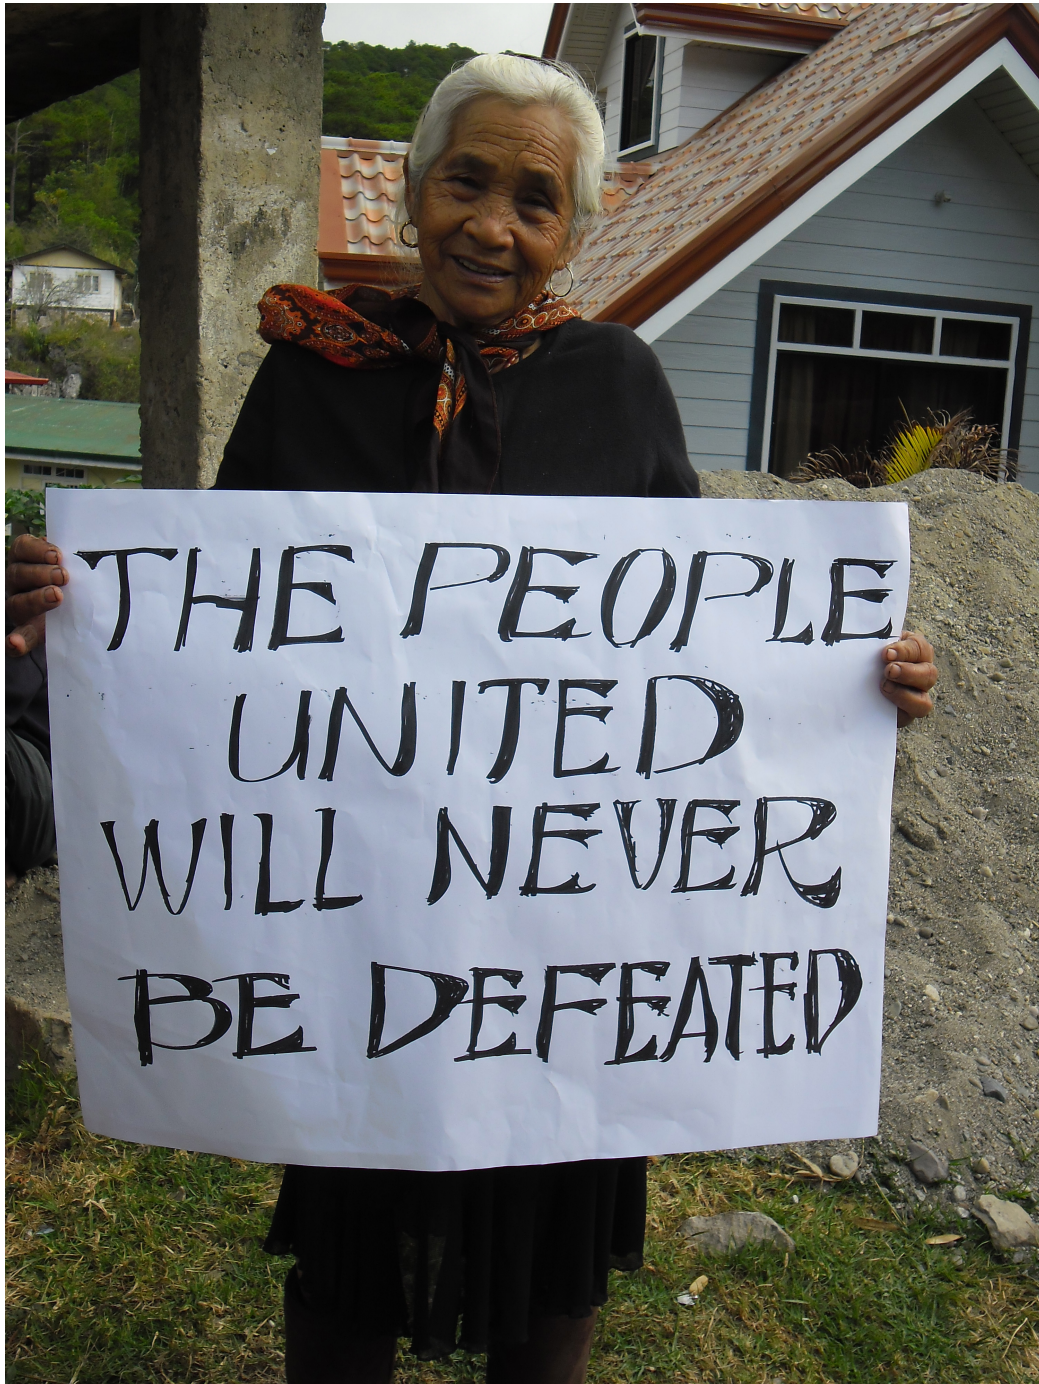 THE PEOPLE
UNITED
WILL NEVER
BE DEFEATED